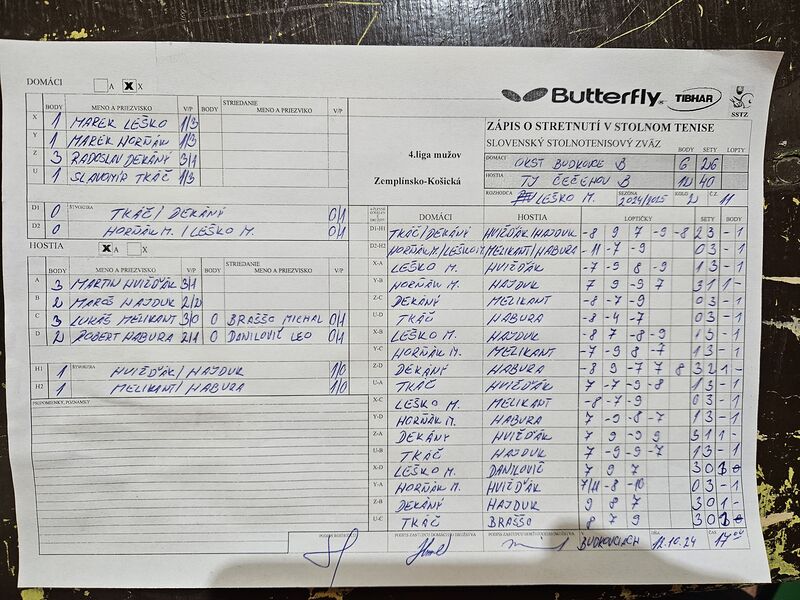 DOMÁCI A X X
BODY MENO A PRIEZVISKO V/P BODY STRIEDANIE MENO A PRIEZVISKO V/P
X 1 MAREK LEŠKO 1/3
Y 1 MAREK HORŇÁK 1/3
Z 3 RADOSLAV DEKÁNY 3/1
U 1 SLAVOMÍR TKÁČ 1/3
D1 0 ŠTVORHRA TKÁČ / DEKÁNY 0/1
D2 0 HORŇÁK M. / LEŠKO M. 0/1
HOSTIA X A X
BODY MENO A PRIEZVISKO V/P BODY STRIEDANIE MENO A PRIEZVISKO V/P
A 3 MARTIN HVIŠĎÁK 3/1
B 2 MAROŠ HAJDUK 2/2
C 3 LUKÁŠ MELIKANT 3/0 0 BRAŠŠO MICHAL 0/1
D 2 ROBERT HABURA 2/1 0 DANILOVIČ LEO 0/1
H1 1 ŠTVORHRA HVIŠĎÁK / HAJDUK 1/0
H2 1 MELIKANT / HABURA 1/0
PRIPOMIENKY, POZNÁMKY
Butterfly TIBHAR SSTZ
4.liga mužov
Zemplínsko-Košická
ZÁPIS O STRETNUTÍ V STOLNOM TENISE
SLOVENSKÝ STOLNOTENISOVÝ ZVÄZ BODY SETY LOPTY
DOMÁCI OKST BUDKOVCE B 6 26
HOSTIA TJ ČEČEHOV B 12 40
ROZHODCA LEŠKO M. SEZÓNA 2024/2025 KOLO 2 Č.Z. 11
DOMÁCI HOSTIA LOPTIČKY SETY BODY
D1-H1 TKÁČ/DEKÁNY HVIŠĎÁK/HAJDUK -8 9 7 -9 -8 2 3 - 1
D2-H2 HORŇÁK M./LEŠKO M. MELIKANT/HABURA -11 -7 -9 0 3 - 1
X-A LEŠKO M. HVIŠĎÁK -7 -9 8 -9 1 3 - 1
Y-B HORŇÁK M. HAJDUK 7 9 -9 7 3 1 1 -
Z-C DEKÁNY MELIKANT -8 -7 -9 0 3 - 1
U-D TKÁČ HABURA -8 -4 -7 0 3 - 1
X-B LEŠKO M. HAJDUK -8 7 -8 -9 1 3 - 1
Y-C HORŇÁK M. MELIKANT -7 -9 8 -7 1 3 - 1
Z-D DEKÁNY HABURA -8 9 -7 7 8 3 2 1 -
U-A TKÁČ HVIŠĎÁK 7 -7 -9 -8 1 3 - 1
X-C LEŠKO M. MELIKANT -8 -7 -9 0 3 - 1
Y-D HORŇÁK M. HABURA -7 -9 8 -7 1 3 - 1
Z-A DEKÁNY HVIŠĎÁK 7 9 -9 9 3 1 1 -
U-B TKÁČ HAJDUK 7 -9 -9 -7 1 3 - 1
X-D LEŠKO M. DANILOVIČ 7 9 7 3 0
Y-A HORŇÁK M. HVIŠĎÁK -8 -10 0 3 - 1
Z-B DEKÁNY HAJDUK 9 8 7 3 0 1 -
U-C TKÁČ BRAŠŠO 8 7 9 3 0
PODPIS ZÁSTUPCU DOMÁCEHO DRUŽSTVA V BUDKOVCIACH DŇA 12.10.24 ČAS